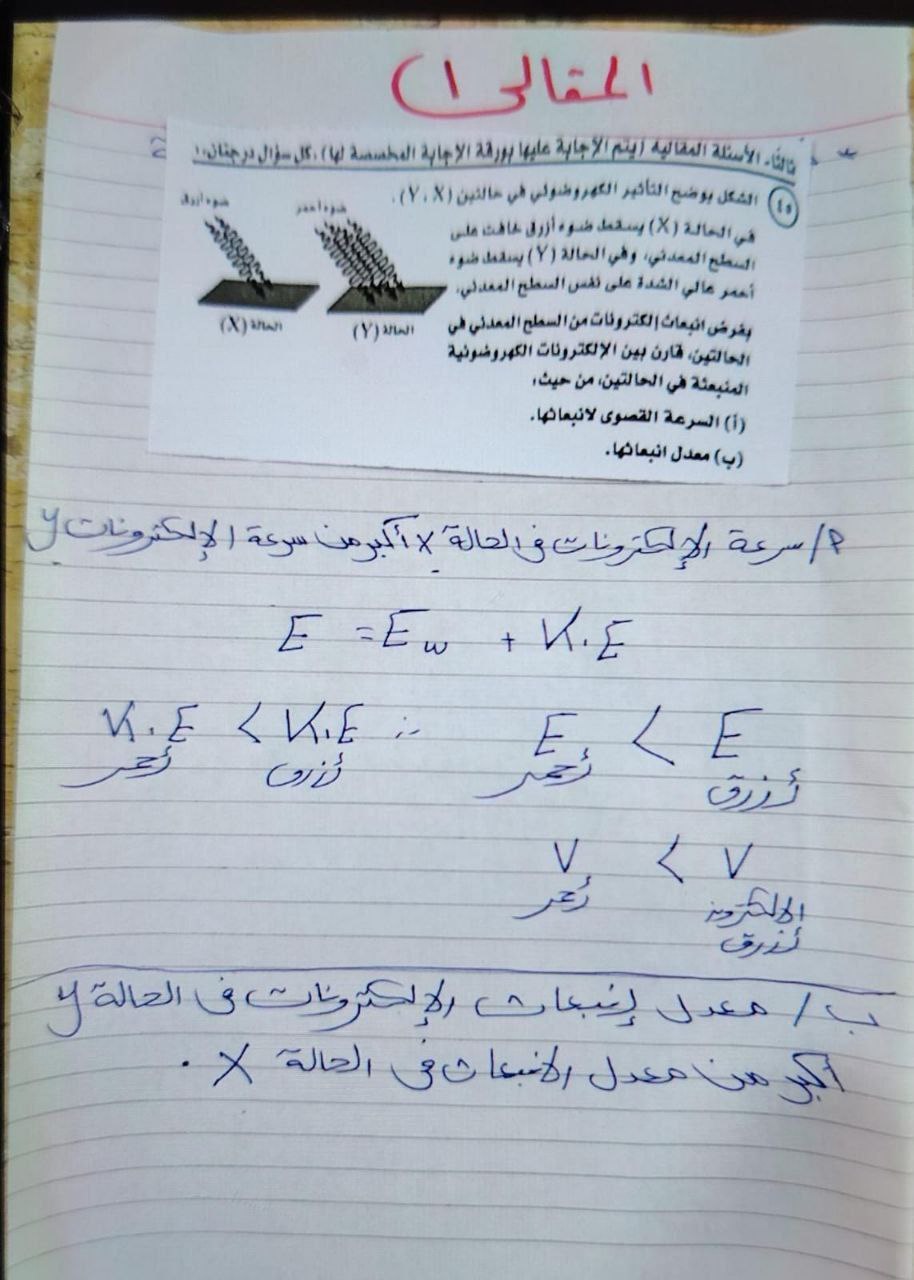 المقالى (1
ثالثًا، الأسئلة المقالية (يتم الإجابة عليها بورقة الإجابة المخصصة لها)، كل سؤال درجتان:
٤٥ الشكل يوضح التأثير الكهروضوئي في حالتين (Y ، X).
في الحالة (X) يسقط ضوء أزرق خافت على
السطح المعدني، وفي الحالة (Y) يسقط ضوء
أحمر عالي الشدة على نفس السطح المعدني.
بفرض انبعاث إلكترونات من السطح المعدني في
الحالتين، قارن بين الإلكترونات الكهروضوئية
المنبعثة في الحالتين، من حيث:
(أ) السرعة القصوى لانبعاثها.
(ب) معدل انبعاثها.
ضوء أحمر
ضوء أزرق
الحالة (Y)
الحالة (X)
أ/ سرعة الإلكترونات فى الحالة X أكبر من سرعة الإلكترونات y
E = Ew + K.E
E أزرق > E أحمر ∴ K.E أزرق > K.E أحمر
V > V
الالكترون أزرق أحمر
ب/ معدل إنبعاث الإلكترونات فى الحالة y
أكبر من معدل الانبعاث فى الحالة X .